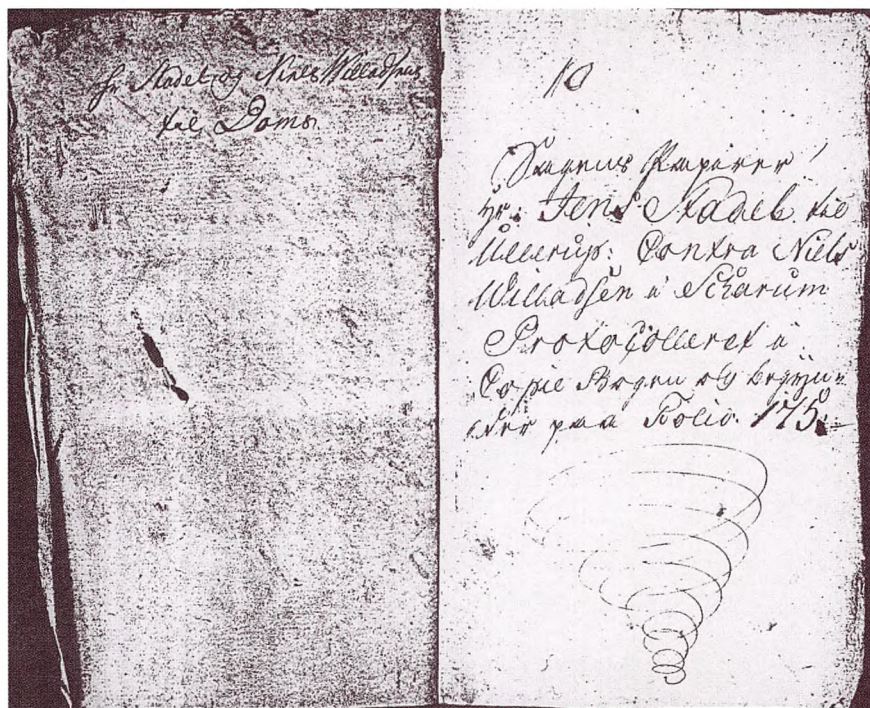 Hr Stadel og Niels Willadsens
til Doms
10
Sagens Papirer
Hr: Jens Stadel til
Ullerup: Contra Niels
Willadsen i Scharum
Protocolleret i
Copie Bogen og begyn=
der paa Folio. 175.